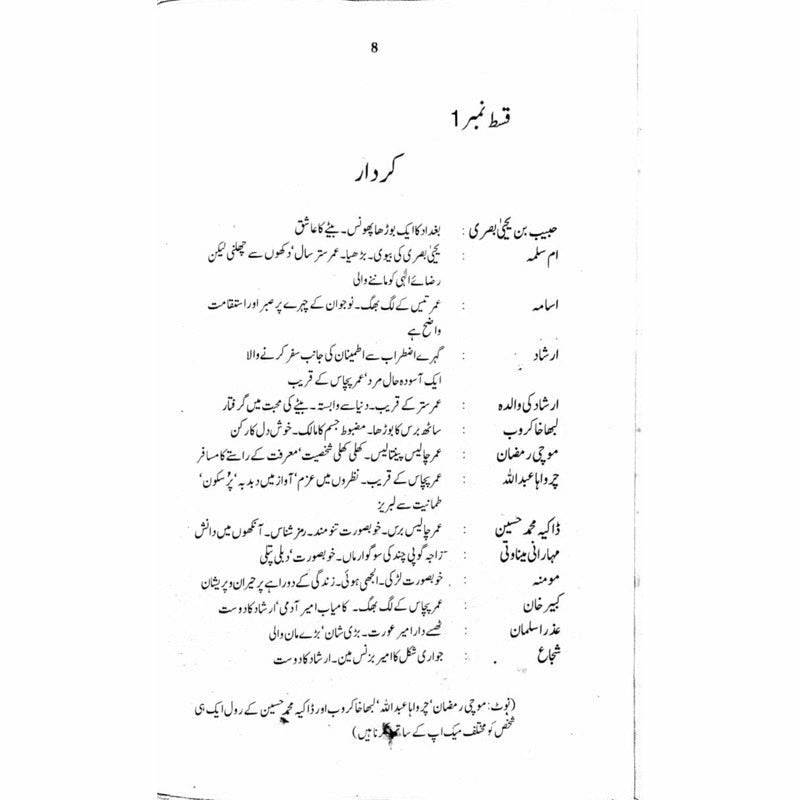 8
قسط نمبر 1
کردار
حبیب بن یحییٰ بصری : بغداد کا ایک بوڑھا پھونس۔ بیٹے کا عاشق
ام سلمہ : یحییٰ بصری کی بیوی۔ بڑھیا۔ عمر ستر سال‘ دکھوں سے چھلنی لیکن
رضائے الٰہی کو ماننے والی
اسامہ : عمر تیس کے لگ بھگ۔ نوجوان کے چہرے پر صبر اور استقامت
واضح ہے
ارشاد : گہرے اضطراب سے اطمینان کی جانب سفر کرنے والا
ایک آسودہ حال مرد‘ عمر پچاس کے قریب
ارشاد کی والدہ : عمر ستر کے قریب۔ دنیا سے وابستہ۔ بیٹے کی محبت میں گرفتار
لبھا خاکروب : ساٹھ برس کا بوڑھا۔ مضبوط جسم کا مالک۔ خوش دل کارکن
موچی رمضان : عمر چالیس پینتالیس۔ کھلی کھلی شخصیت‘ معرفت کے راستے کا مسافر
چرواہا عبداللہ : عمر پچاس کے قریب۔ نظروں میں عزم‘ آواز میں دبدبہ‘ پُرسکون‘
طمانیت سے لبریز
ڈاکیہ محمد حسین : عمر چالیس برس۔ خوبصورت تنومند۔ رمز شناس۔ آنکھوں میں دانش
مہارانی میناوتی : راجہ گوپی چند کی سوگوار ماں۔ خوبصورت‘ دبلی پتلی
مومنہ : خوبصورت لڑکی۔ الجھی ہوئی۔ زندگی کے دوراہے پر حیران و پریشان
کبیر خان : عمر پچاس کے لگ بھگ۔ کامیاب امیر آدمی‘ ارشاد کا دوست
عذرا سلمان : ٹھسے دار امیر عورت۔ بڑی شان‘ بڑے مان والی
شجاع : جواری شکل کا امیر بزنس مین۔ ارشاد کا دوست
(نوٹ: موچی رمضان‘ چرواہا عبداللہ‘ لبھا خاکروب اور ڈاکیہ محمد حسین کے رول ایک ہی
شخص کو مختلف میک اپ کے ساتھ کرنا ہیں)